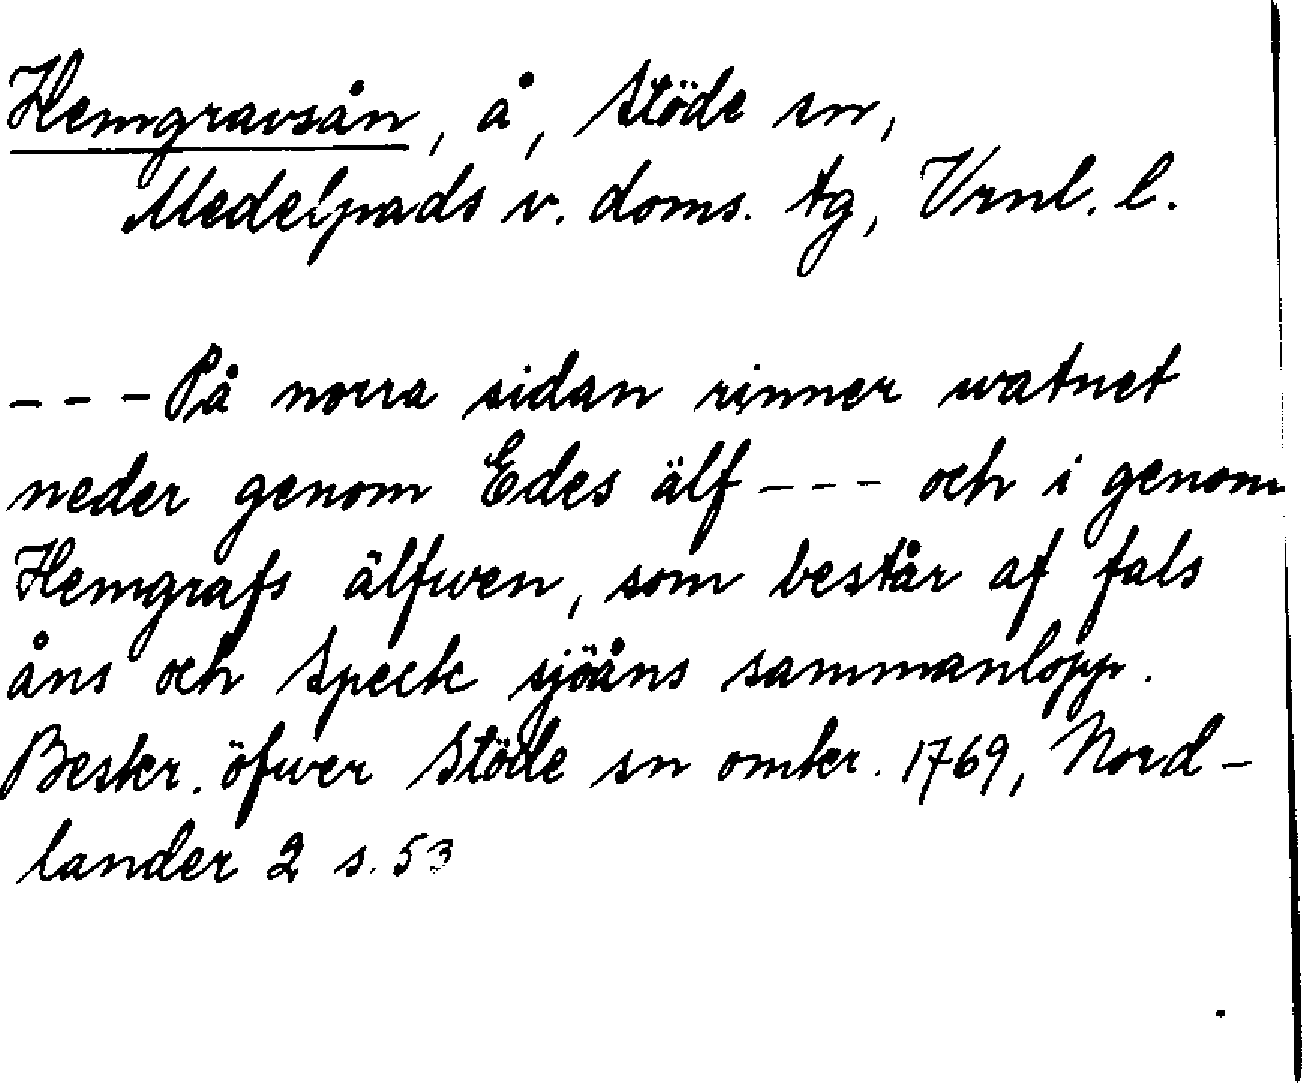 Hemgravsån, å, Stöde sn,
Medelpads v. doms. tg, Vrnl. l.
--- På norra sidan rinner watnet
neder genom Edes älf --- och i genom
Hemgrafs älfwen, som består af fals
åns och Speck sjöåns sammanlopp.
Beskr. öfwer Stöde sn omkr. 1769, Nord-
lander 2 s. 53